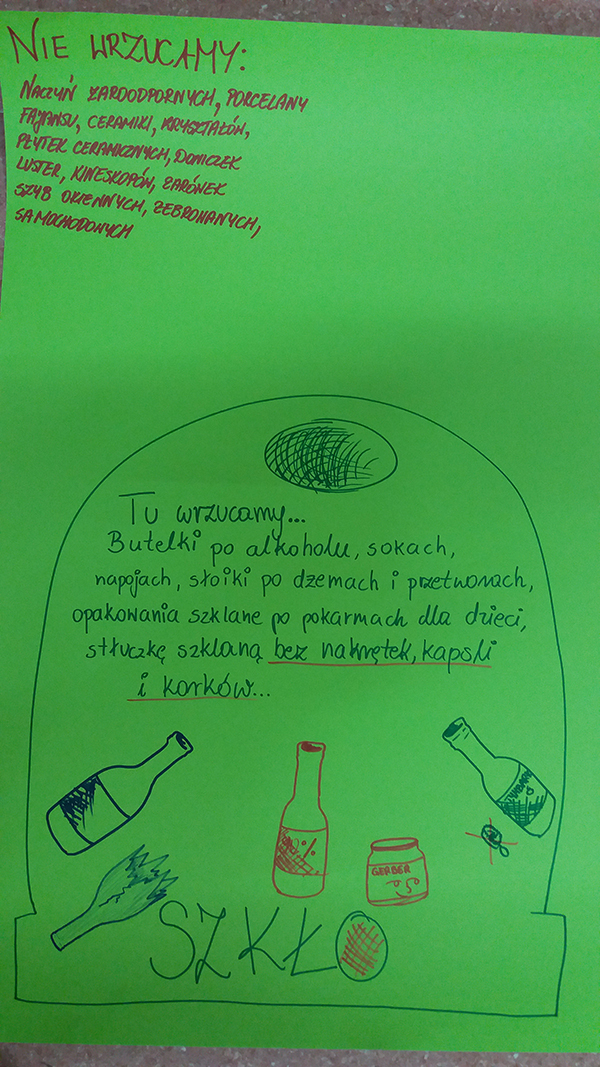 NIE WRZUCAMY:
NACZYŃ ŻAROODPORNYCH, PORCELANY
FAJANSU, CERAMIKI, KRYSZTAŁÓW,
PŁYTEK CERAMICZNYCH, DONICZEK
LUSTER, KINESKOPÓW, ŻARÓWEK
SZYB OKIENNYCH, ZEBROWANYCH,
SAMOCHODOWYCH
Tu wrzucamy...
Butelki po alkoholu, sokach,
napojach, słoiki po dżemach i przetworach,
opakowania szklane po pokarmach dla dzieci,
stłuczkę szklaną bez nakrętek, kapsli
i korków...
%
GERBER
SZKŁO